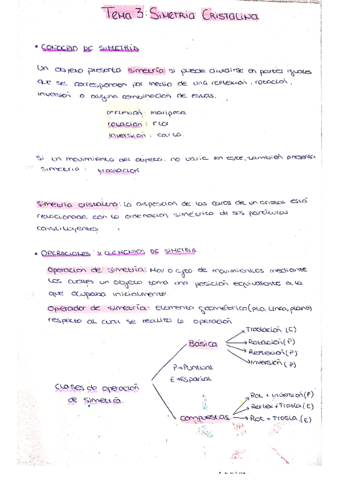 Tema 3: Simetria Cristalina
• CONCEPTO DE SIMETRÍA
Un objeto presenta simetría si puede dividirse en partes iguales
que se correspondan por medio de una reflexión, rotación,
inversión o alguna combinación de estas.
reflexión: mariposa
rotación: flor
inversión:
Si un movimiento del objeto no varia en este, también presenta
simetría: traslación
Simetría cristalina: la disposición de las caras de un cristal está
relacionada con la ordenación simétrica de sus partículas
constituyentes.
• OPERACIONES Y ELEMENTOS DE SIMETRÍA
Operación de simetría: mediante
los cuales un objeto toma una posición equivalente a la
que ocupaba inicialmente
Operador de simetría: elemento geométrico (pto, línea, plano)
respecto al cual se realiza la operación
Clases de operación
de simetría.
P → Puntual
E → Espacial
Básica
Traslación (E)
Rotación (P)
Reflexión (P)
Inversión (P)
compuestas
Rot + Inversión (P)
Reflex + Trasla. (E)
Rot + Trasla. (E)